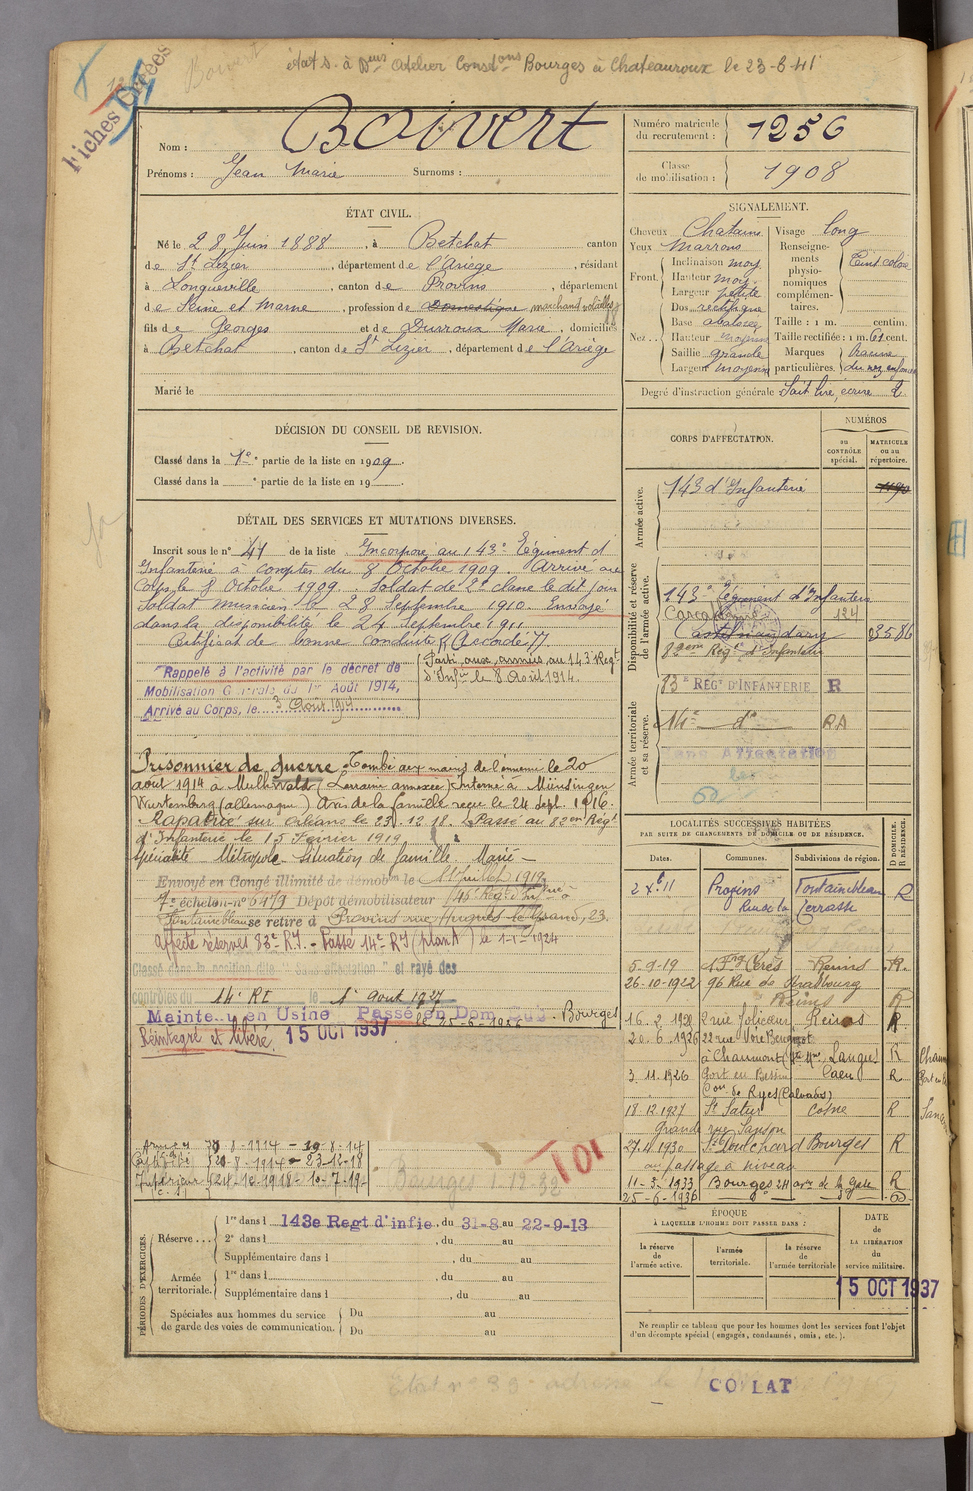 états. à Dons Atelier Constons Bourges à Chateauroux le 23-6-41
Boivert
Fiches Créées
Nom : Boivert
Prénoms : Jean Marie Surnoms :
Numéro matricule du recrutement : 1256
Classe de mobilisation : 1908
ÉTAT CIVIL.
Né le 28 Juin 1888, à Betchat canton
de St Lizier, département de l'Ariège, résidant
à Longueville, canton de Provins, département
de Seine et Marne, profession de Domestique marchand volailles
fils de Georges et de Durroux Marie, domiciliés
à Betchat, canton de St Lizier, département de l'Ariège
Marié le
SIGNALEMENT.
Cheveux Chatains
Yeux Marrons
Front. Inclinaison moy
Hauteur moy.
Largeur petite
Nez.. Dos rectiligne
Base abaissée
Hauteur moyenne
Saillie grande
Largeur moyenne
Visage long
Renseignements physionomiques complémentaires. Teint coloré
Taille : 1 m. centim.
Taille rectifiée : 1 m. 61 cent.
Marques particulières. du nez
Degré d'instruction générale Sait lire, écrire 2
DÉCISION DU CONSEIL DE REVISION.
Classé dans la 1e partie de la liste en 1909.
Classé dans la ° partie de la liste en 19 .
DÉTAIL DES SERVICES ET MUTATIONS DIVERSES.
Inscrit sous le n° 41 de la liste Incorporé au 143e Régiment d'
Infanterie à compter du 8 Octobre 1909. Arrivé au
Corps le 8 Octobre 1909. Soldat de 2e classe le dit jour
Soldat musicien le 28 Septembre 1910. Envoyé
dans la disponibilité le 24 Septembre 1911
Certificat de bonne conduite "Accordé"
Rappelé à l'activité par le décret de
Mobilisation Générale du 1er Août 1914,
Arrivé au Corps, le 3 Aout 1914
Parti aux armées au 143e Regt
d'Infrie le 8 Août 1914.
Prisonnier de guerre. Tombé aux mains de l'ennemi le 20
août 1914 à Mulhwald (Lorraine annexée) Interné à Münsingen
Wurtemberg (allemagne) Avis de la famille reçu le 24 sept. 1916.
Rapatrié sur Orléans le 23.12.18. Passé au 82em Régt
d'Infanterie le 15 Février 1919
Spécialité Métropole Situation de famille Marié
Envoyé en Congé illimité de démobon le 11 Juillet 1919
7e échelon n° 6479 Dépôt démobilisateur 46e Regt d'Infrie à
Fontainebleau se retire à Provins rue Hugues le Grand, 23.
Affecté réserves 83e RI. - Passé 14e RI (plan A) le 1-1-1924
Classé dans la position dite "Sans affectation" et rayé des
contrôles du 14e RI le 1er aout 1927
Maintenu en Usine Passé en Dom. le 25-6-1936 Bourges
Réintégré et libéré. 15 OCT 1937
Armée 8-8-1914 - 19-8-14
Captivité 20-8-1914 - 23-12-18
Intérieur 24-12-1918 - 10-7-19
Bourges 1-12-32
TOI
CORPS D'AFFECTATION.
NUMÉROS
au CONTRÔLE spécial.
MATRICULE ou au répertoire.
Armée active.
143 d'Infanterie
Disponibilité et réserve de l'armée active.
143e Régiment d'Infanterie
Carcassonne 124
Castelnaudary 03586
82em Régt d'Infanterie
Armée territoriale et sa réserve.
83e REGt D'INFANTERIE R
14e do RA
Sans Affectation
LOCALITÉS SUCCESSIVES HABITÉES
PAR SUITE DE CHANGEMENTS DE DOMICILE OU DE RÉSIDENCE.
Dates. Communes. Subdivisions de région. D DOMICILE. R RÉSIDENCE.
2 Xbre 11 Provins Fontainebleau R
Rue de la Terrasse
5-9-19 1 Fbg Cérès Reims R.
26-10-1922 96 Rue de Strasbourg
Reims R
16.2.1920 2 rue Jolicoeur Reims R
20.6.1926 22 rue Voie
à Chaumont (Hte Mne) Langres R
3.11.1926 Port en Bessin Caen R
Con de Ryes (Calvados)
18.12.1927 St Satur Cosne R
Grande rue
27.4.1930 St Doulchard Bourges R
au passage à niveau
11-3-1933 Bourges 24 avr de la Gare R
25-6-1936 do do
PÉRIODES D'EXERCICES.
Réserve... 1re dans l 143e Regt d'infie, du 31-8 au 22-9-13
2e dans l , du au
Supplémentaire dans l , du au
Armée territoriale. 1re dans l , du au
Supplémentaire dans l , du au
Spéciales aux hommes du service de garde des voies de communication. Du au
Du au
ÉPOQUE
À LAQUELLE L'HOMME DOIT PASSER DANS :
la réserve de l'armée active.
l'armée territoriale.
la réserve de l'armée territoriale
DATE de LA LIBÉRATION du service militaire.
15 OCT 1937
Ne remplir ce tableau que pour les hommes dont les services font l'objet
d'un décompte spécial (engagés, condamnés, omis, etc.).
COLLAT